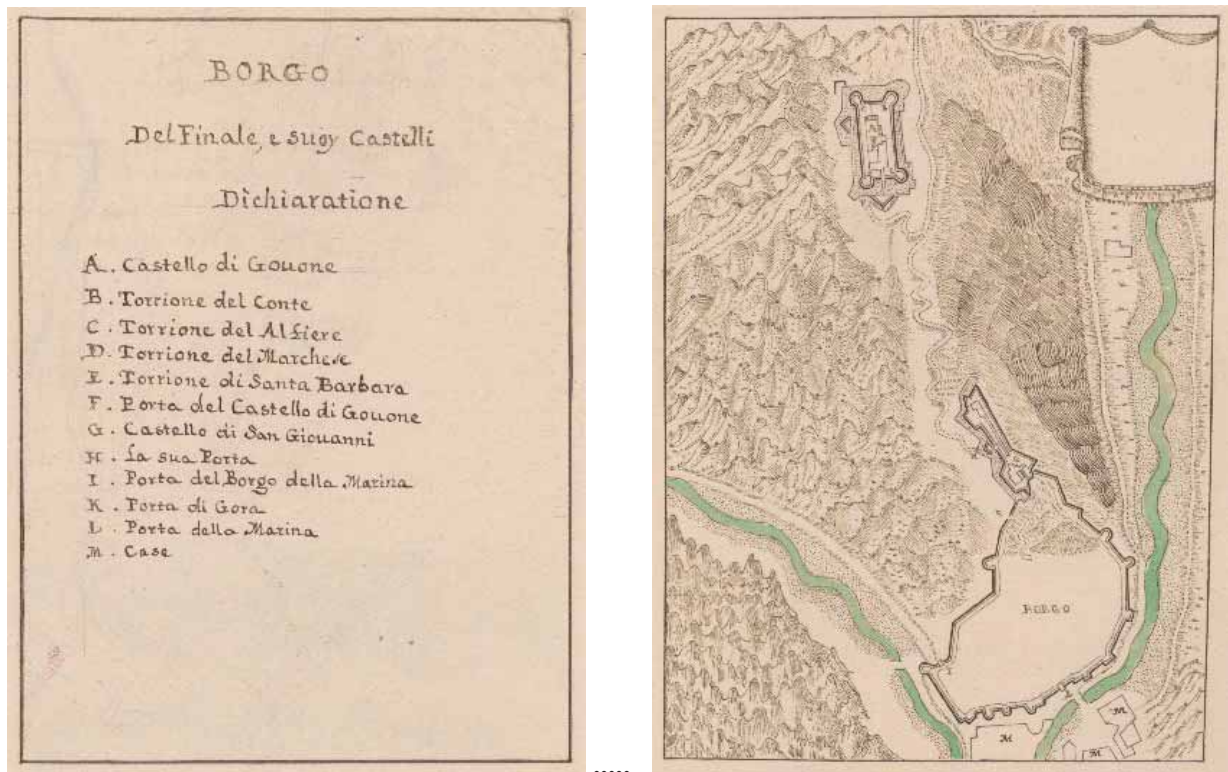 BORGO
Del Finale, e suoy Castelli
Dichiaratione
A. Castello di Gouone
B. Torrione del Conte
C. Torrione del Alfiere
D. Torrione del Marchese
E. Torrione di Santa Barbara
F. Porta del Castello di Gouone
G. Castello di San Giouanni
H. La sua Porta
I. Porta del Borgo della Marina
K. Porta di Gora
L. Porta della Marina
M. Case
BORGO
M
M
M